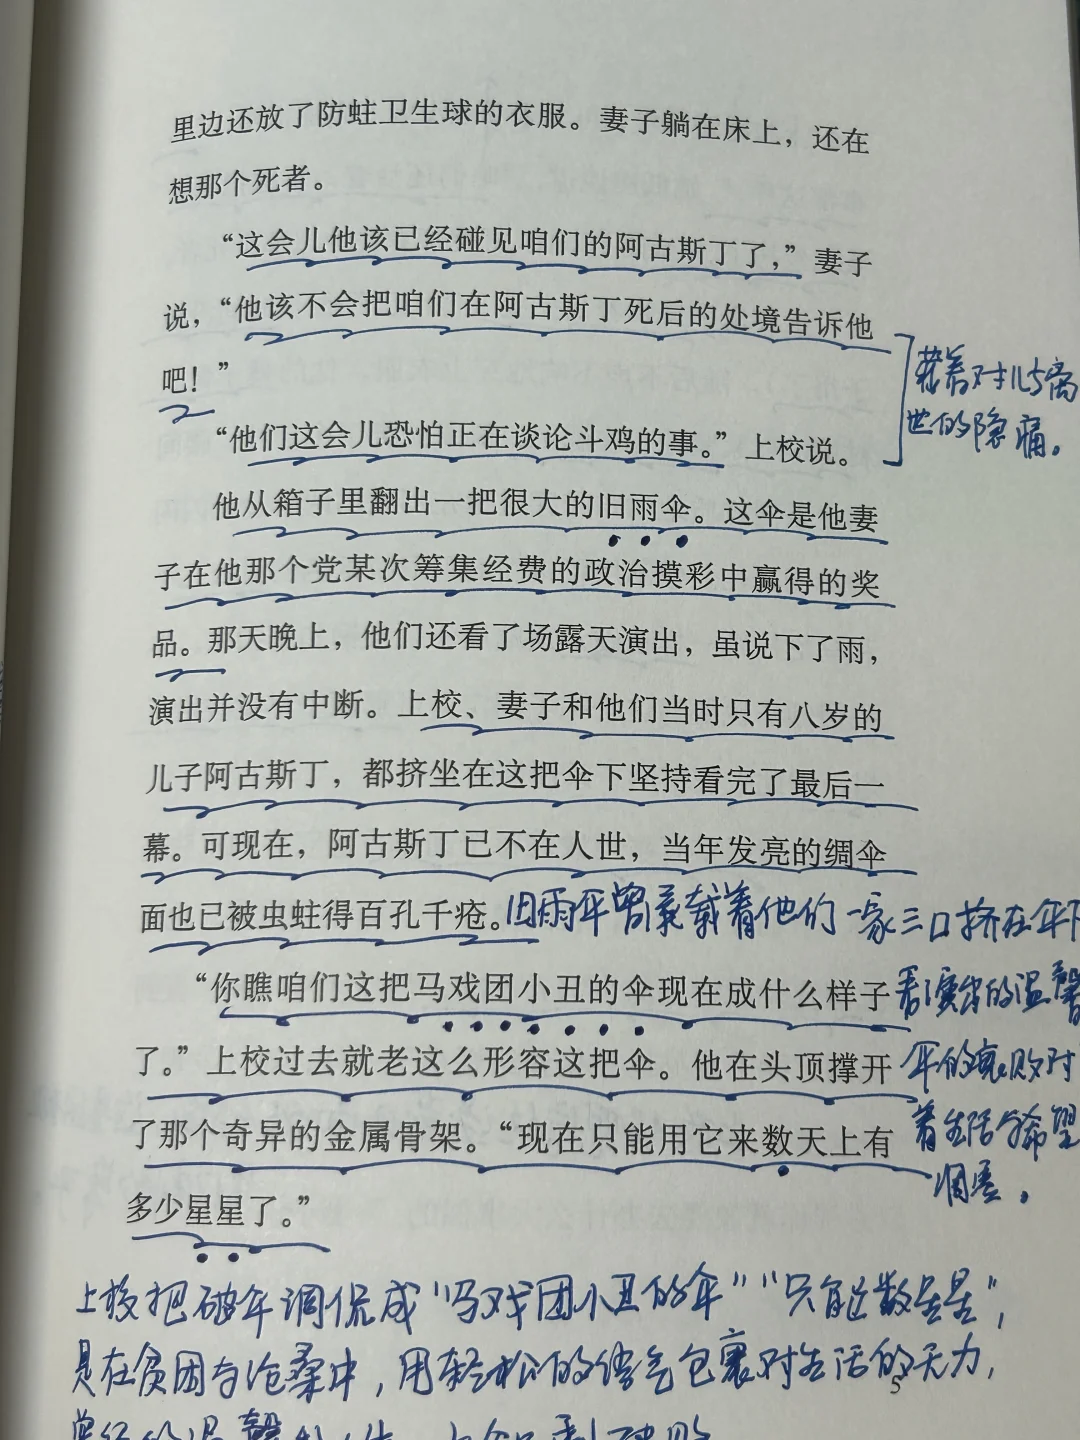 里边还放了防蛀卫生球的衣服。妻子躺在床上，还在
想那个死者。
“这会儿他该已经碰见咱们的阿古斯丁了，”妻子
说，“他该不会把咱们在阿古斯丁死后的处境告诉他
吧！”
“他们这会儿恐怕正在谈论斗鸡的事。”上校说。
他从箱子里翻出一把很大的旧雨伞。这伞是他妻
子在他那个党某次筹集经费的政治摸彩中赢得的奖
品。那天晚上，他们还看了场露天演出，虽说下了雨，
演出并没有中断。上校、妻子和他们当时只有八岁的
儿子阿古斯丁，都挤坐在这把伞下坚持看完了最后一
幕。可现在，阿古斯丁已不在人世，当年发亮的绸伞
面也已被虫蛀得百孔千疮。
“你瞧咱们这把马戏团小丑的伞现在成什么样子
了。”上校过去就老这么形容这把伞。他在头顶撑开
了那个奇异的金属骨架。“现在只能用它来数天上有
多少星星了。”
藏着对儿子离
世的隐痛。
旧雨伞曾承载着他们一家三口挤在伞下
看演出的温馨
伞的衰败对
着生活与希望
凋零。
上校把破伞调侃成“马戏团小丑的伞”“只能数星星”，
是在贫困与沧桑中，用轻松的语气包裹对生活的无力，
5